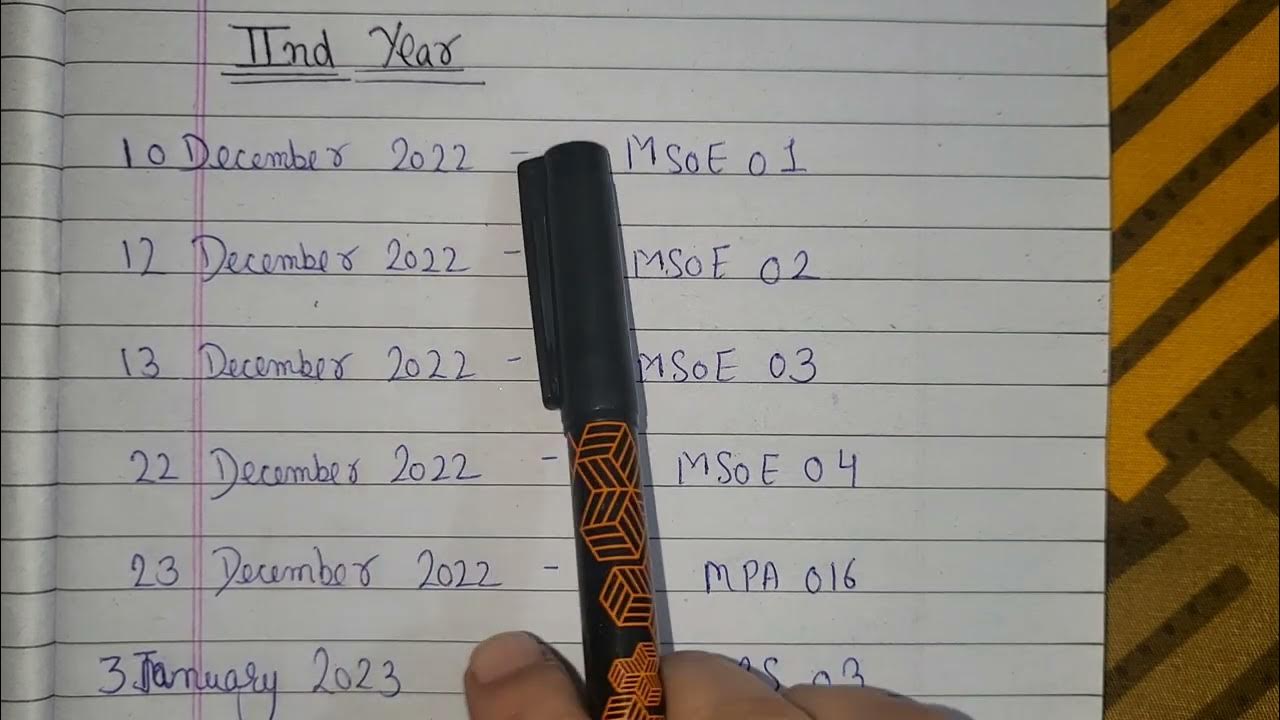 IInd Year
10 December 2022 - MSOE 01
12 December 2022 - MSOE 02
13 December 2022 - MSOE 03
22 December 2022 - MSOE 04
23 December 2022 - MPA 016
3 January 2023